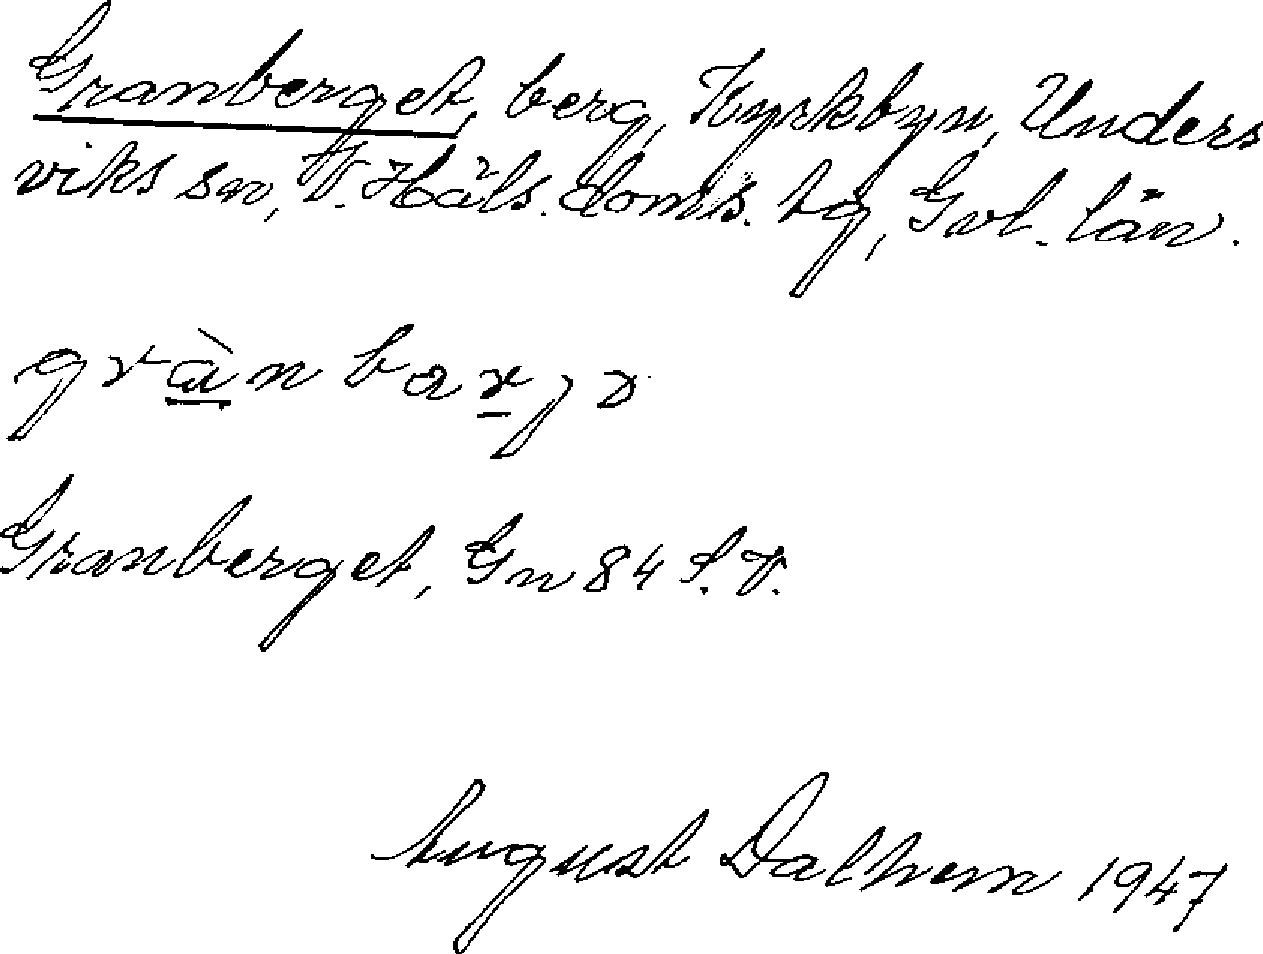 Granberget, berg, Kyrkbyn, Unders
viks sn, V. Häls. doms. tg, Gvl. län.
gràn barjə
Granberget, Gn 84 S.V.
August Dalhem 1947